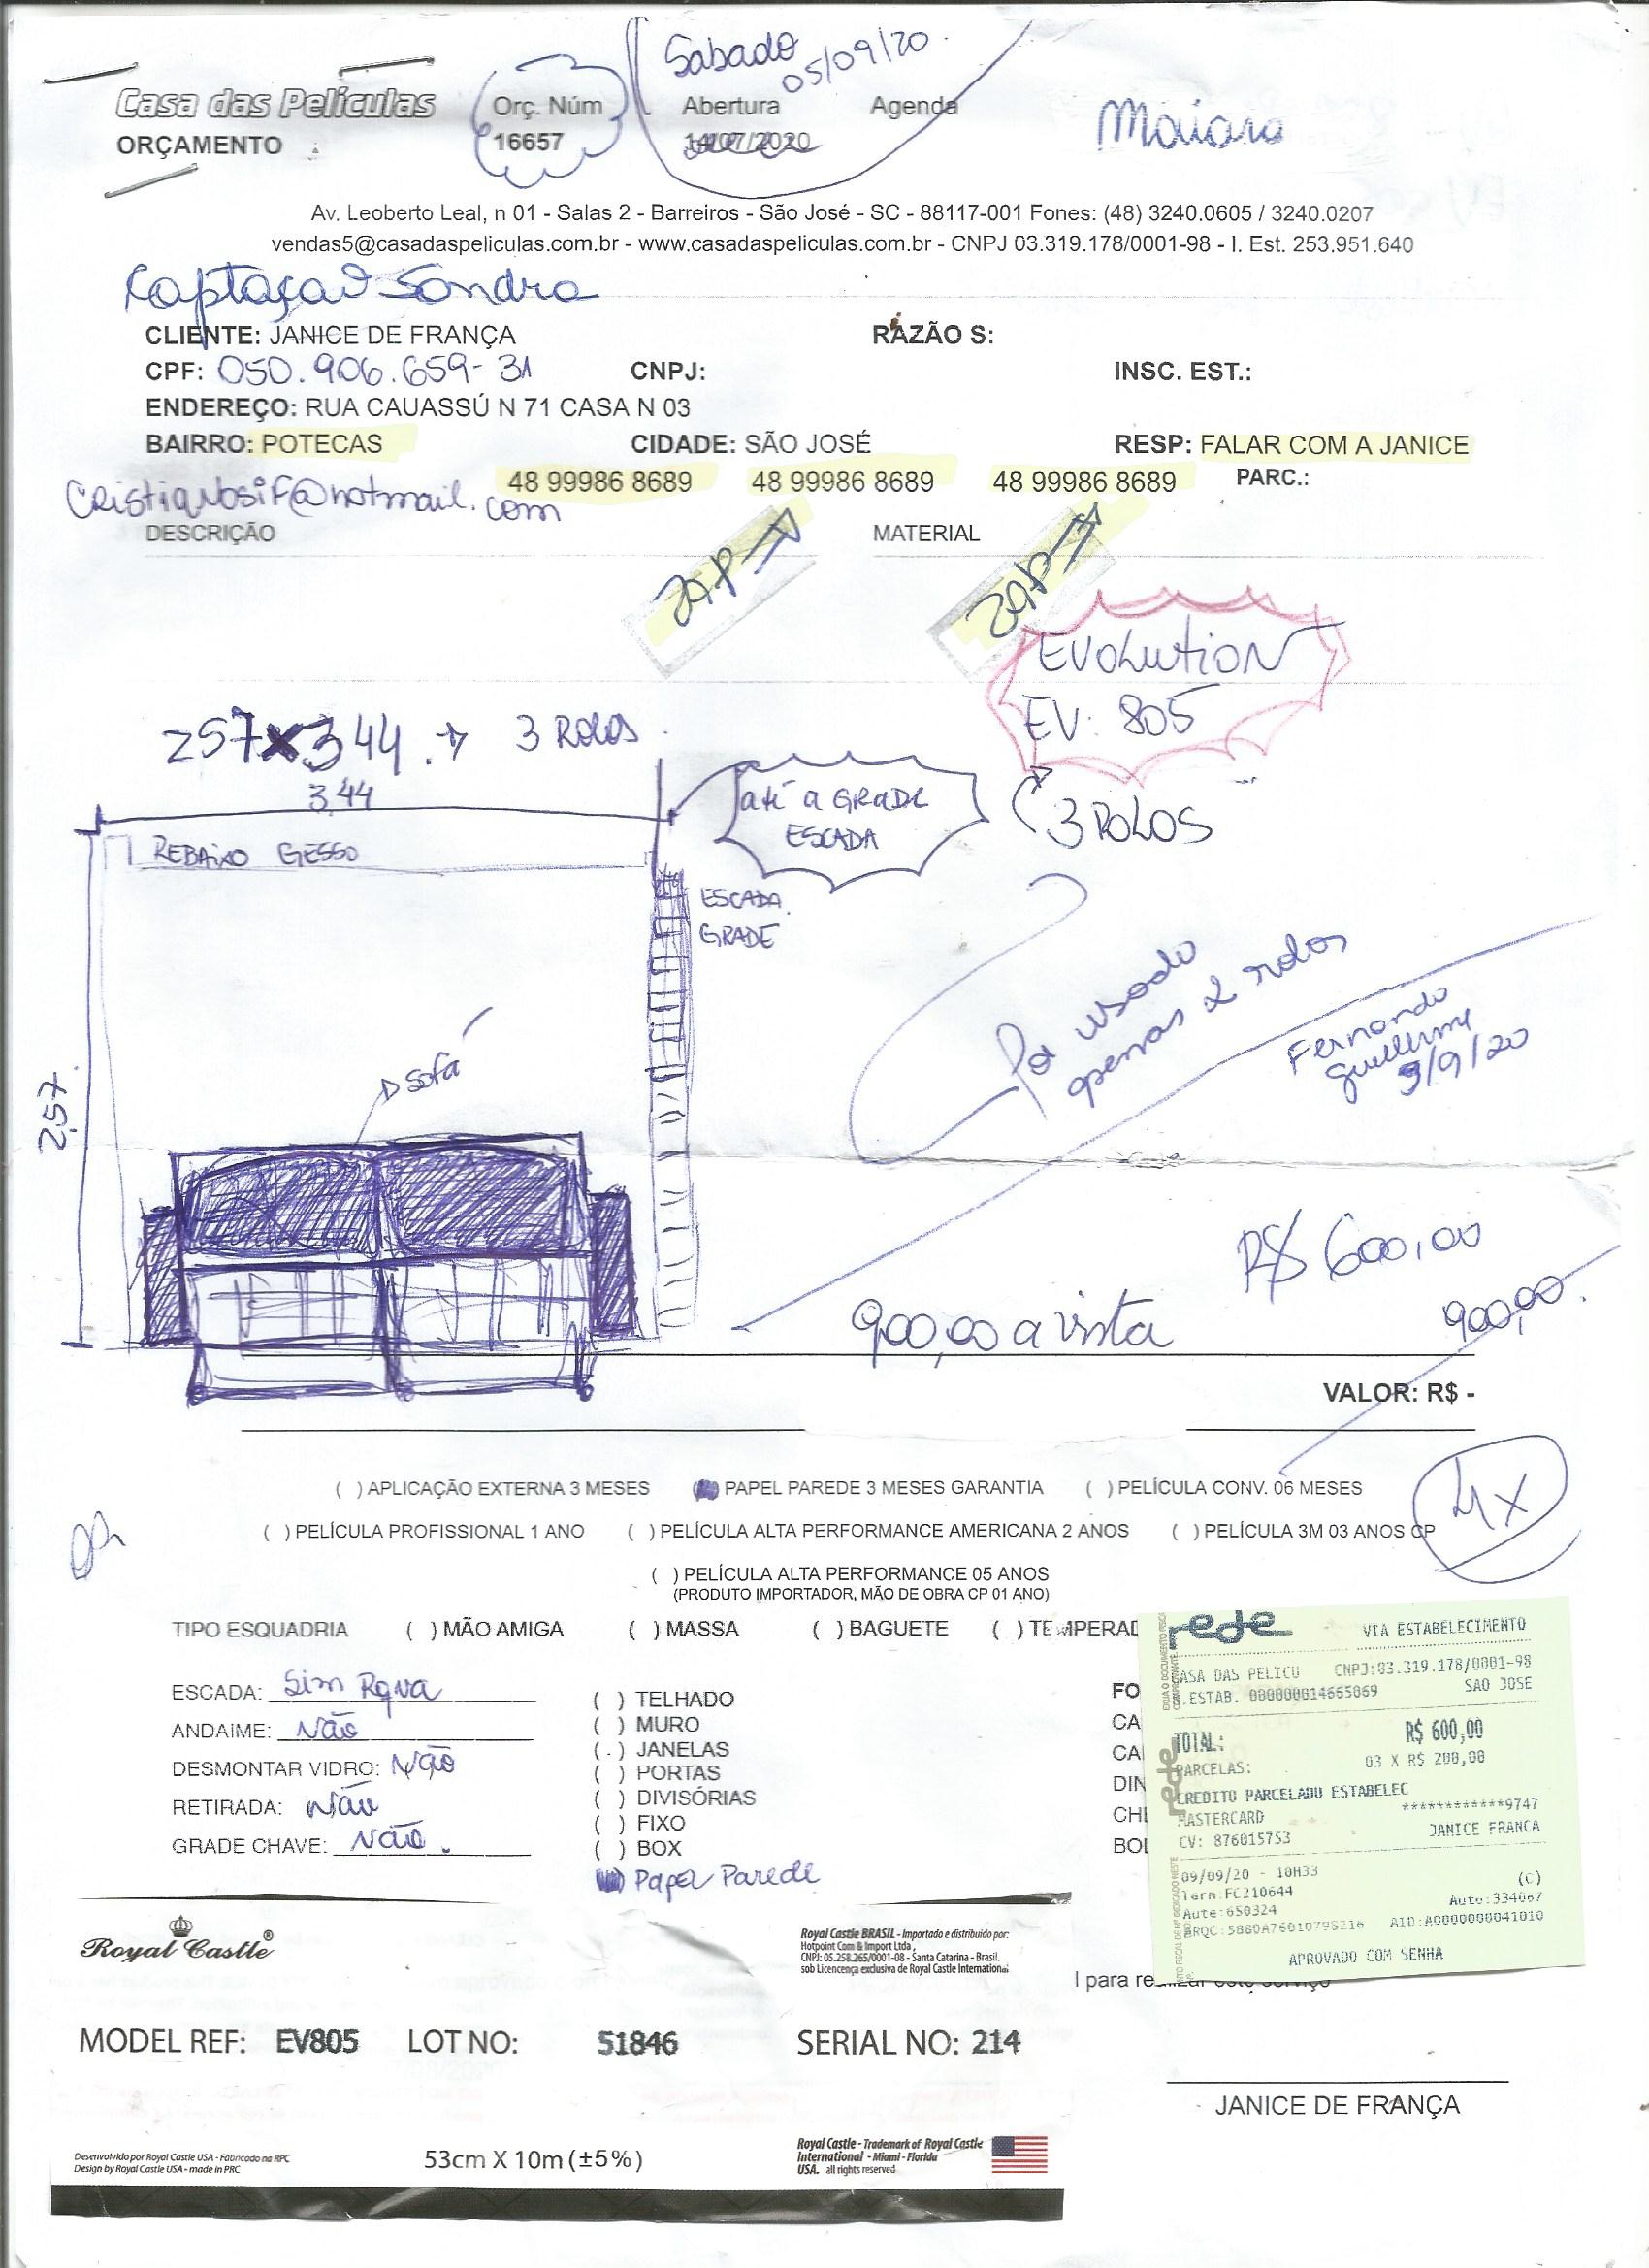 Sabado
05/09/20.
Casa das Películas
Orç. Núm
Abertura
Agenda
Maiara
ORÇAMENTO
16657
14/07/2020
Av. Leoberto Leal, n 01 - Salas 2 - Barreiros - São José - SC - 88117-001 Fones: (48) 3240.0605 / 3240.0207
vendas5@casadaspeliculas.com.br - www.casadaspeliculas.com.br - CNPJ 03.319.178/0001-98 - I. Est. 253.951.640
Captação Sandra
CLIENTE: JANICE DE FRANÇA RAZÃO S:
CPF: 050.906.659-31 CNPJ: INSC. EST.:
ENDEREÇO: RUA CAUASSÚ N 71 CASA N 03
BAIRRO: POTECAS CIDADE: SÃO JOSÉ RESP: FALAR COM A JANICE
48 99986 8689 48 99986 8689 48 99986 8689 PARC.:
DESCRIÇÃO MATERIAL
ZAP ZAP
EVOLUTION
EV: 805
257x344. → 3 ROLOS.
3,44
até a GRADE
ESCADA
3 ROLOS
REBAIXO GESSO
ESCADA
GRADE
usado
apenas 2 rolos
Fernando
Guilherme
9/9/20
Sofá
2,57.
R$ 600,00
900,00 a vista
900,00.
VALOR: R$ -
4x
( ) APLICAÇÃO EXTERNA 3 MESES PAPEL PAREDE 3 MESES GARANTIA ( ) PELÍCULA CONV. 06 MESES
( ) PELÍCULA PROFISSIONAL 1 ANO ( ) PELÍCULA ALTA PERFORMANCE AMERICANA 2 ANOS ( ) PELÍCULA 3M 03 ANOS CP
( ) PELÍCULA ALTA PERFORMANCE 05 ANOS
(PRODUTO IMPORTADOR, MÃO DE OBRA CP 01 ANO)
TIPO ESQUADRIA ( ) MÃO AMIGA ( ) MASSA ( ) BAGUETE ( ) TEMPERAD
ESCADA: Sim
ANDAIME: Não
DESMONTAR VIDRO: Não
RETIRADA: Não
GRADE CHAVE: Não.
( ) TELHADO
( ) MURO
(.) JANELAS
( ) PORTAS
( ) DIVISÓRIAS
( ) FIXO
( ) BOX
Papel Parede
FO
CA
CA
DIN
CH
BOL
rede VIA ESTABELECIMENTO
ASA DAS PELICU CNPJ:03.319.178/0001-98
N.ESTAB. 000000014665069 SAO JOSE
TOTAL: R$ 600,00
PARCELAS: 03 X R$ 200,00
CREDITO PARCELADO ESTABELEC
MASTERCARD ************9747
CV: 876015753 JANICE FRANCA
09/09/20 - 10H33 (C)
Term:FC210644 Auto:334067
Aute:650324
ARQC:5880A7601079S216 AID:A0000000041010
APROVADO COM SENHA
rede
l para realizar este serviço
JANICE DE FRANÇA
Royal Castle®
Royal Castle BRASIL - Importado e distribuido por:
Hotpoint Com & Import Ltda,
CNPJ: 05.258.265/0001-08 - Santa Catarina - Brasil.
sob Licencença exclusiva de Royal Castle International
MODEL REF: EV805 LOT NO: 51846 SERIAL NO: 214
Desenvolvido por Royal Castle USA - Fabricado na RPC
Design by Royal Castle USA - made in PRC
53cm X 10m (±5%)
Royal Castle - Trademark of Royal Castle
International - Miami - Florida
USA. all rights reserved
cristianosif@hotmail.com